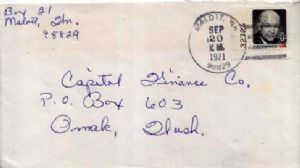 Box 21
Malott, Wn.
98829
MALOTT, WA.
SEP
20
1971
98829
EISENHOWER
Capitol Finance Co.
P.O. Box 603
Omak, Wash.